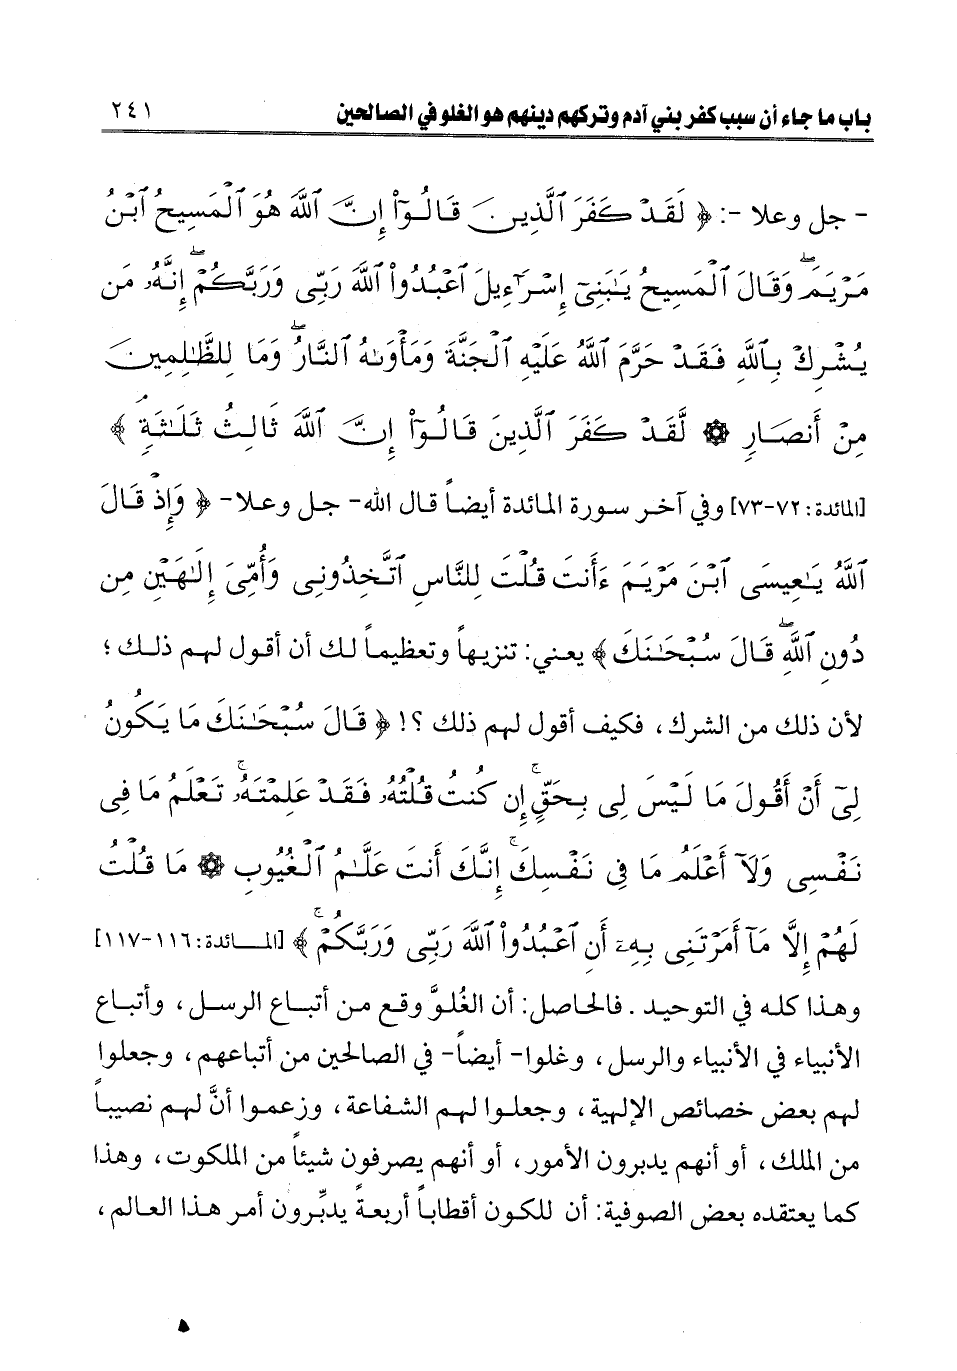 باب ما جاء أن سبب كفر بني آدم وتركهم دينهم هو الغلو في الصالحين ٢٤١
- جل وعلا -: ﴿ لَقَدْ كَفَرَ ٱلَّذِينَ قَالُوٓا۟ إِنَّ ٱللَّهَ هُوَ ٱلْمَسِيحُ ٱبْنُ
مَرْيَمَ ۖ وَقَالَ ٱلْمَسِيحُ يَـٰبَنِىٓ إِسْرَٰٓءِيلَ ٱعْبُدُوا۟ ٱللَّهَ رَبِّى وَرَبَّكُمْ ۖ إِنَّهُۥ مَن
يُشْرِكْ بِٱللَّهِ فَقَدْ حَرَّمَ ٱللَّهُ عَلَيْهِ ٱلْجَنَّةَ وَمَأْوَىٰهُ ٱلنَّارُ ۖ وَمَا لِلظَّـٰلِمِينَ
مِنْ أَنصَارٍ ۞ لَّقَدْ كَفَرَ ٱلَّذِينَ قَالُوٓا۟ إِنَّ ٱللَّهَ ثَالِثُ ثَلَـٰثَةٍ ﴾
[المائدة: ٧٢-٧٣] وفي آخر سورة المائدة أيضاً قال الله- جل وعلا- ﴿ وَإِذْ قَالَ
ٱللَّهُ يَـٰعِيسَى ٱبْنَ مَرْيَمَ ءَأَنتَ قُلْتَ لِلنَّاسِ ٱتَّخِذُونِى وَأُمِّىَ إِلَـٰهَيْنِ مِن
دُونِ ٱللَّهِ ۖ قَالَ سُبْحَـٰنَكَ ﴾ يعني: تنزيهاً وتعظيماً لك أن أقول لهم ذلك؛
لأن ذلك من الشرك، فكيف أقول لهم ذلك ؟! ﴿ قَالَ سُبْحَـٰنَكَ مَا يَكُونُ
لِىٓ أَنْ أَقُولَ مَا لَيْسَ لِى بِحَقٍّ ۚ إِن كُنتُ قُلْتُهُۥ فَقَدْ عَلِمْتَهُۥ ۚ تَعْلَمُ مَا فِى
نَفْسِى وَلَآ أَعْلَمُ مَا فِى نَفْسِكَ ۚ إِنَّكَ أَنتَ عَلَّـٰمُ ٱلْغُيُوبِ ۞ مَا قُلْتُ
لَهُمْ إِلَّا مَآ أَمَرْتَنِى بِهِۦٓ أَنِ ٱعْبُدُوا۟ ٱللَّهَ رَبِّى وَرَبَّكُمْ ۚ ﴾ [المائدة: ١١٦-١١٧]
وهذا كله في التوحيد . فالحاصل: أن الغُلوَّ وقع من أتباع الرسل، وأتباع
الأنبياء في الأنبياء والرسل، وغلوا- أيضاً- في الصالحين من أتباعهم، وجعلوا
لهم بعض خصائص الإلهية، وجعلوا لهم الشفاعة، وزعموا أنَّ لهم نصيباً
من الملك، أو أنهم يدبرون الأمور، أو أنهم يصرفون شيئاً من الملكوت، وهذا
كما يعتقده بعض الصوفية: أن للكون أقطاباً أربعةً يدبِّرون أمر هذا العالم،